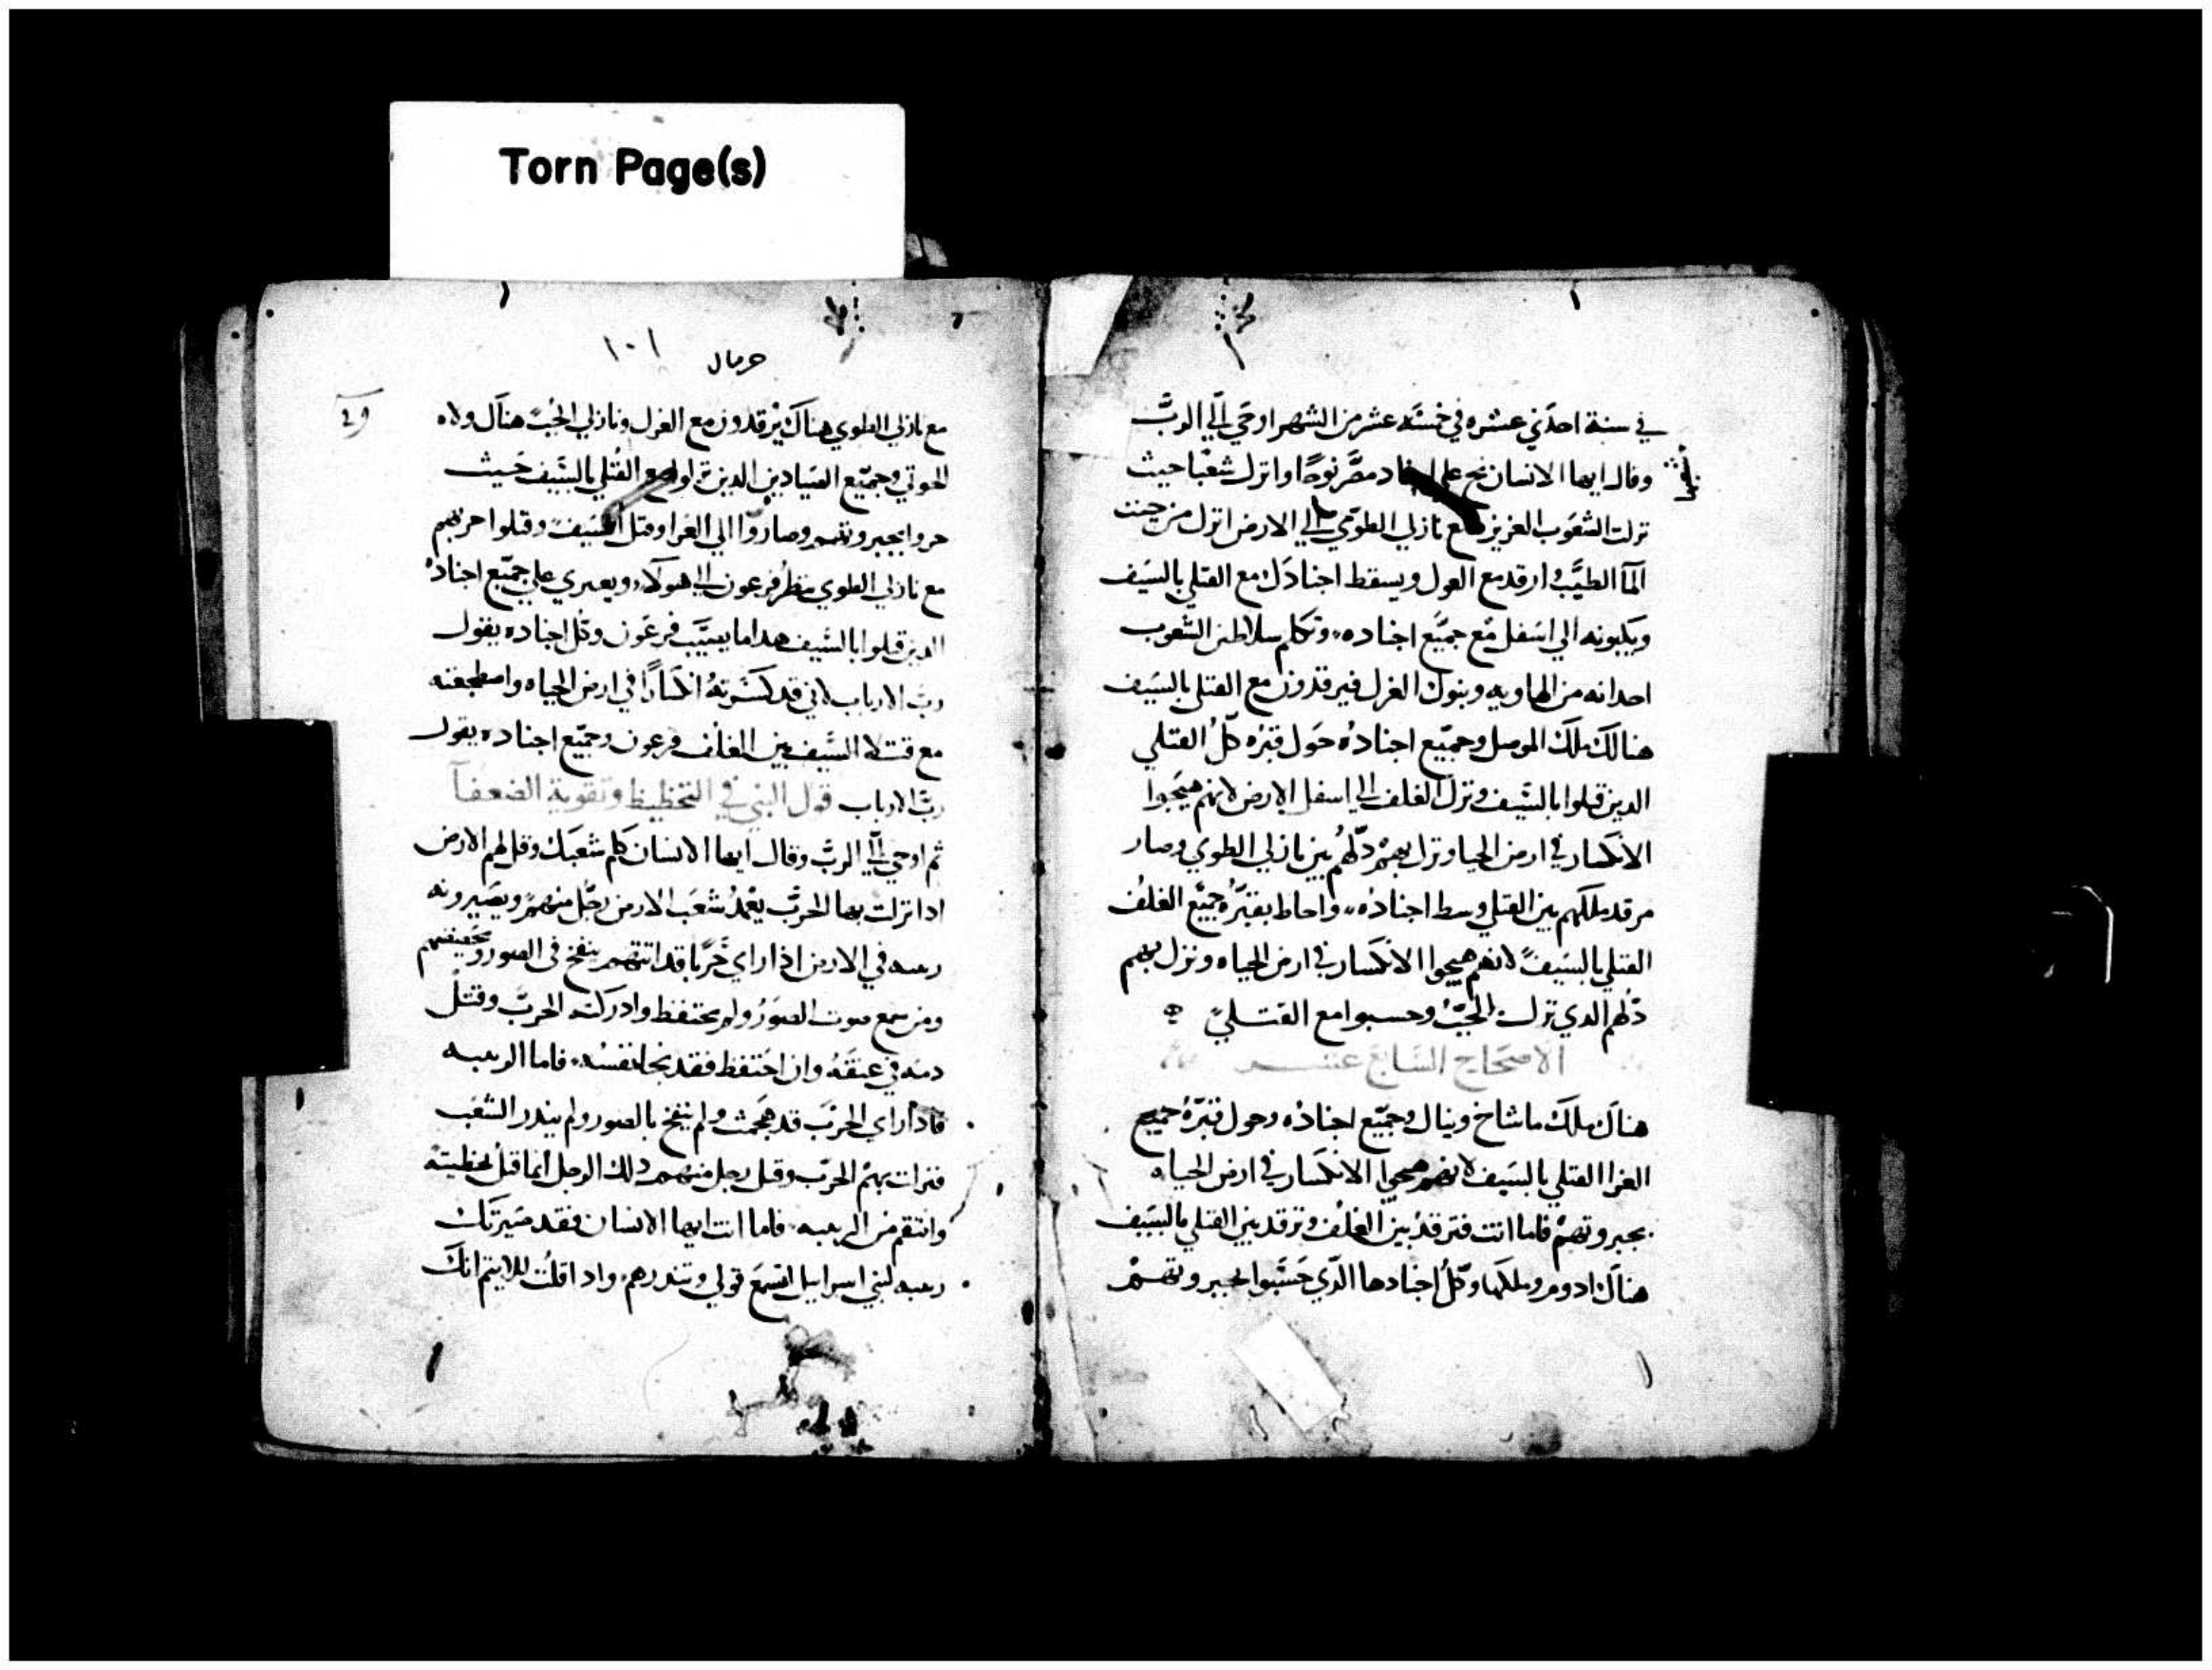 Torn Page(s)
في سنة احدي عشره في خمسة عشر من الشهر اوحي الي الرب
وقال ايها الانسان نح علي اجناد مصر نوحًا وانزل شعبا حيث
نزلت الشعوب العزيزه مع نازلي الطوي الي الارض انزل من حيث
الما الطيب وارقد مع الغرل ويسقط اجنادك مع القتلي بالسيف
ويكبونه الي اسفل مع جميع اجناده وتكلم سلاطين الشعوب
احدانه من الهاويه وبنوك الغرل فيرقدون مع القتلي بالسيف
هنالك ملك الموصل وجميع اجناده حول قبره كل القتلي
الدين قتلوا بالسيف ونزل الغلف الي اسفل الارض لانهم هيجوا
الانكسار في ارض الحيا ونزل بهم دلهم بين نازلي الطوي وصار
مرقد ملكهم بين القتلي وسط اجناده واحاط بقبره جميع الغلف
القتلي بالسيف لانهم هيجوا الانكسار في ارض الحياه ونزل بهم
دلهم الدي نزل الجب وحسبوا مع القتلي
الاصحاح السابع عشر
هناك ملك ماشاخ وينال وجميع اجناده وحول قبره جميع
الغرا القتلي بالسيف لانهم هيجوا الانكسار في ارض الحياه
بجبروتهم فاما انت فترقد بين الغلف وترقد بين القتلي بالسيف
هناك ادوم وملكها وكل اجنادها الدي حسبوا بجبروتهم
١٠١ حزقيال
مع نازلي الطوي هناك يرقدون مع الغرل ونازلي الجب هناك ولاه
الحوتي وجميع الصيادين الدين نزلوا مع القتلي بالسيف حيث
حروا بجبروتهم وصاروا الي الغرا وقتل السيف وقتلوا حربهم
مع نازلي الطوي ينظر فرعون الي هولاء ويعتري علي جميع اجناده
الدين قتلوا بالسيف هدا ما يصيب فرعون وكل اجناده يقول
رب الارباب لاني قد كسرته انكسارًا في ارض الحياه واضطجعته
مع قتلا السيف بين الغلف فرعون وجميع اجناده يقول
رب الارباب قول النبي في التحظيظ وتقوية الضعفا
ثم اوحي الي الرب وقال ايها الانسان كلم شعبك وقل لهم الارض
ادا نزلت بها الحرب يعمد شعب الارض رجل منهم ويصيرونه
رعبه في الارض اذا راي حربا قد اتتهم ينفخ في الصور
ومن سمع صوت الصور ولم يحتفظ وادركته الحرب وقتل
دمه في عنقه وان احتفظ فقد نجا نفسه فاما الربيه
فادا راي الحرب قد هجمت ولم ينفخ بالصور ولم يندر الشعب
فنزلت بهم الحرب وقتل رجل منهم دلك الرجل انما قتل بخطيته
وانتقم من الربيه فاما انت ايها الانسان فقد صيرتك
ربيه لبني اسراييل اتسمع قولي وتندرهم وادا قلت للاثيم انك